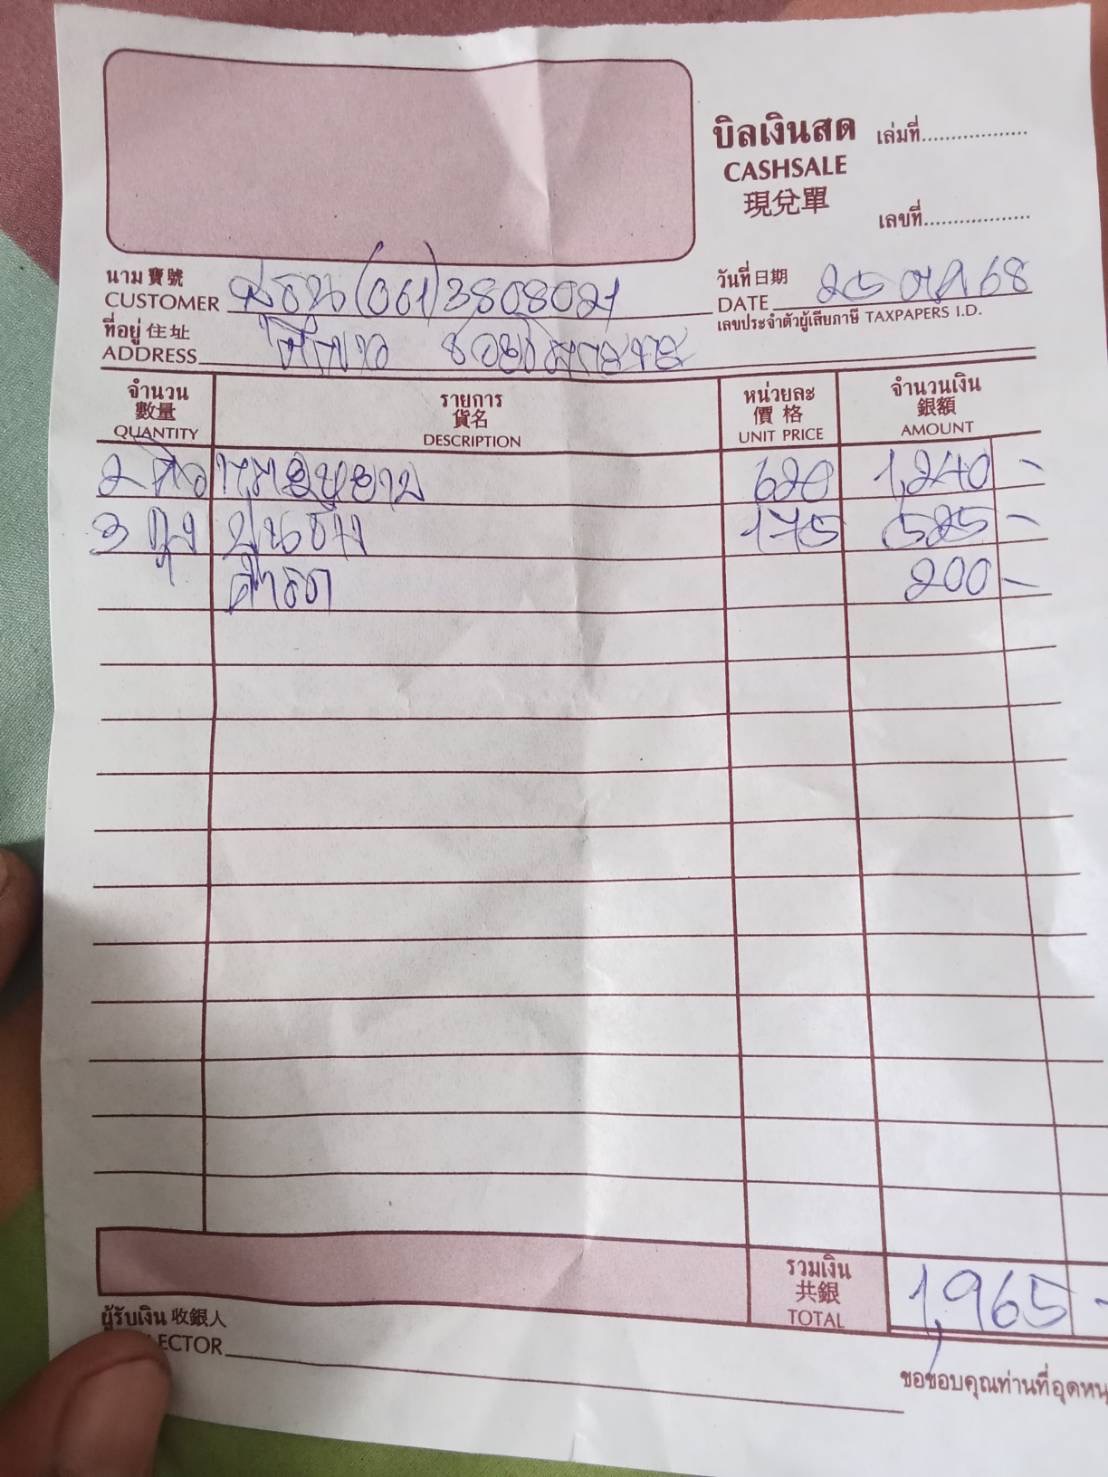 บิลเงินสด เล่มที่..................
CASHSALE
現兌單
เลขที่..................
นาม 寶號
CUSTOMER (061)3808021
วันที่ 日期
DATE 25 68
ที่อยู่ 住址
ADDRESS
เลขประจำตัวผู้เสียภาษี TAXPAPERS I.D.
จำนวน รายการ หน่วยละ จำนวนเงิน
數量 貨名 價格 銀額
QUANTITY DESCRIPTION UNIT PRICE AMOUNT
2 คิว 620 1,240 -
3 ถุง 175 525 -
ค่ารถ 200 -
รวมเงิน
共銀
TOTAL 1,965 -
ผู้รับเงิน 收銀人
ECTOR
ขอขอบคุณท่านที่อุดหนุ